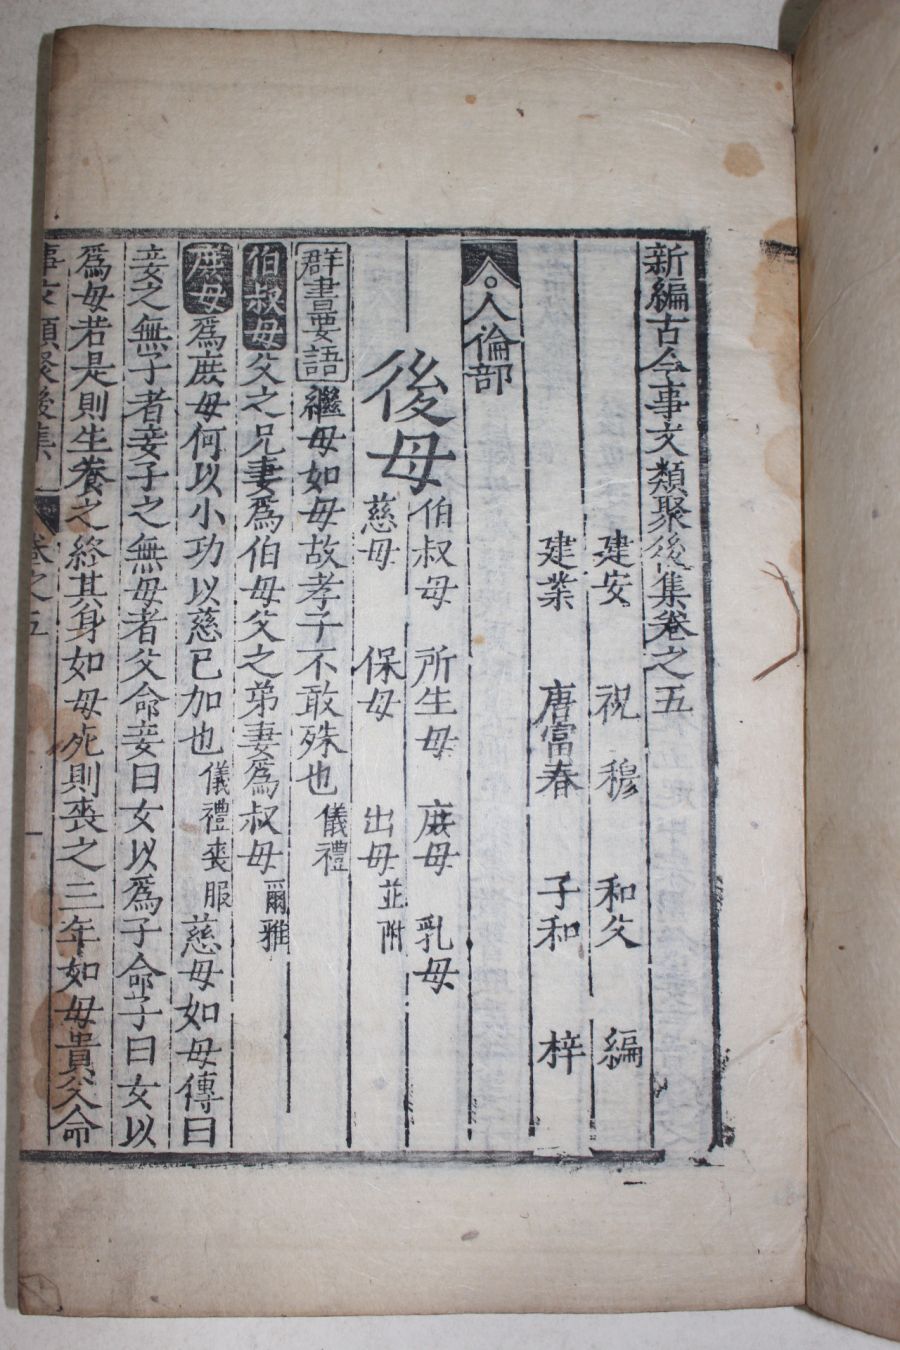 新編古今事文類聚後集卷之五
建安 祝 穆 和父 編
建業 唐富春 子和 梓
人倫部
後母
伯叔母 所生母 庶母 乳母
慈母 保母 出母 並附
群書要語 繼母如母故孝子不敢殊也 儀禮
伯叔母 父之兄妻爲伯母父之弟妻爲叔母 爾雅
庶母 爲庶母何以小功以慈已加也 儀禮喪服 慈母如母傳曰
妾之無子者妾子之無母者父命妾曰女以爲子命子曰女以
爲母若是則生養之終其身如母死則喪之三年如母貴父命
事文類聚後集 卷之五 一